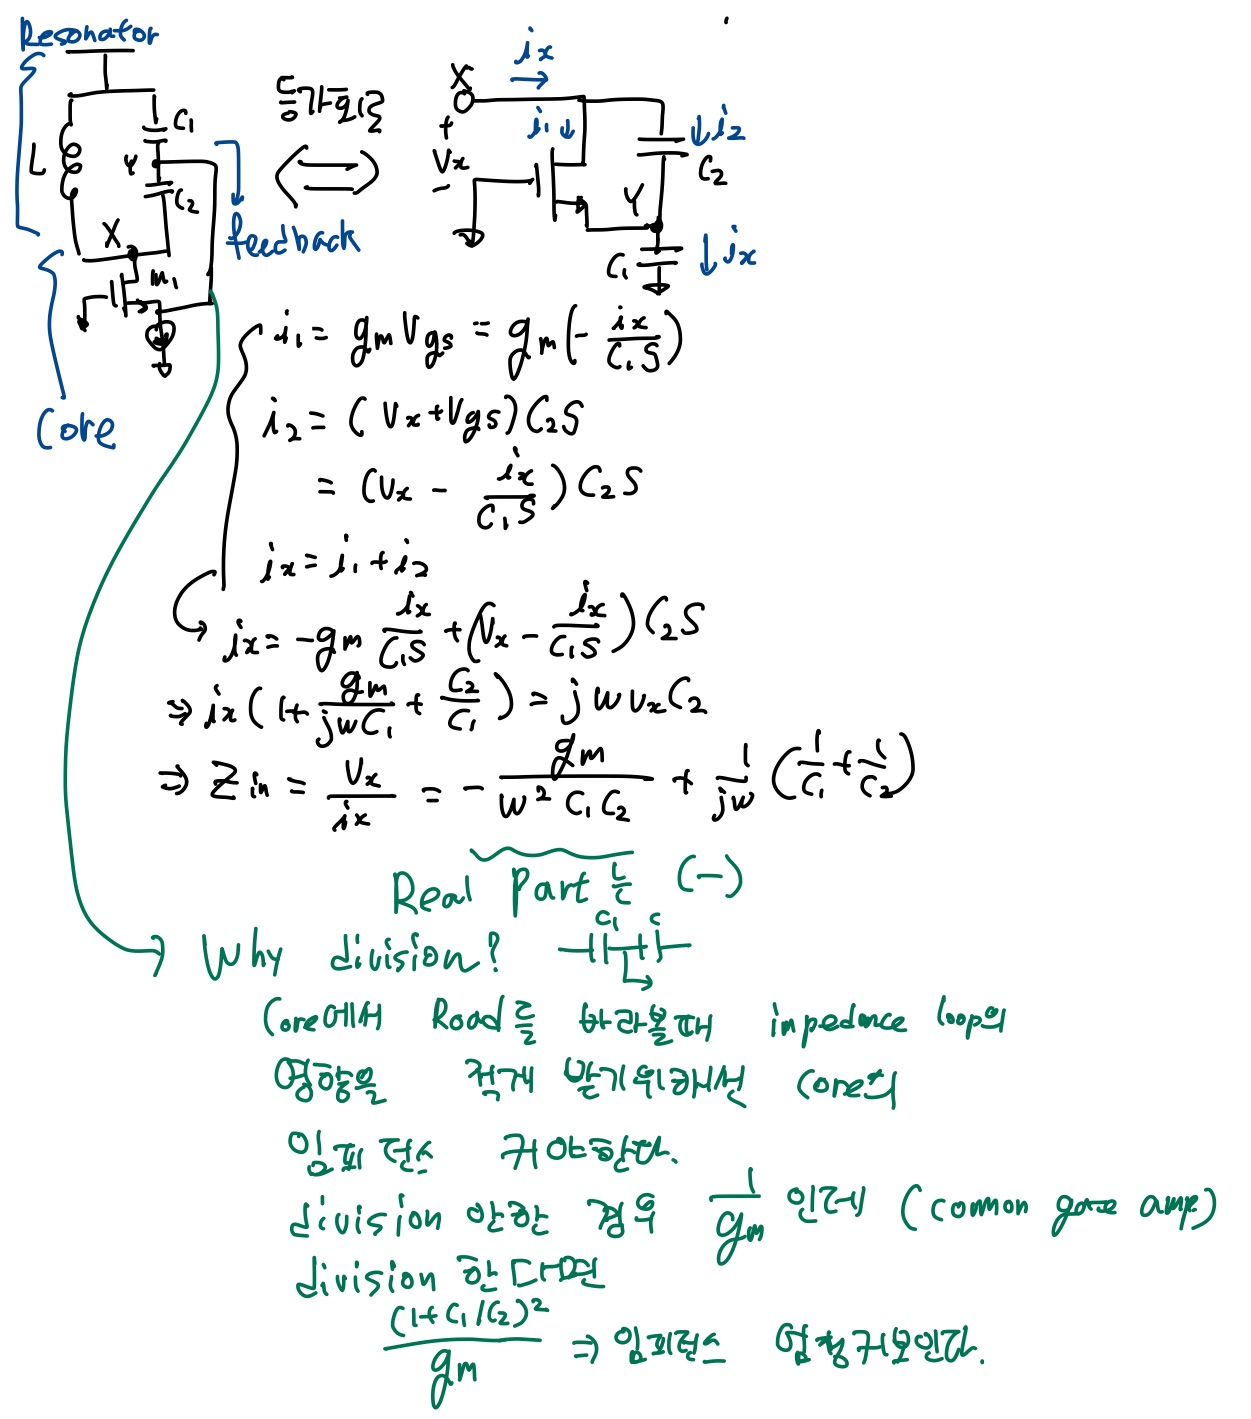 Resonator
L
C₁
Y
C₂
X
M₁
feedback
Core
등가회로
X
iₓ
i₁
i₂
+
Vₓ
−
C₂
Y
C₁
iₓ
i₁ = gm Vgs = gm(− iₓ/C₁S)
i₂ = (Vₓ+Vgs)C₂S
= (Vₓ − iₓ/C₁S) C₂S
iₓ = i₁ + i₂
iₓ = −gm iₓ/C₁S + (Vₓ − iₓ/C₁S) C₂S
⇒ iₓ(1 + gm/jwC₁ + C₂/C₁) = jwVₓC₂
⇒ Zin = Vₓ/iₓ = − gm/w²C₁C₂ + 1/jw (1/C₁ + 1/C₂)
Real Part는 (−)
Why division?
C₁ C
Core에서 Road를 바라볼때 impedance loop의
영향을 적게 받기위해선 Core의
임피던스 커야한다.
division 안한 경우 1/gm 인데 (common gate amp)
division 한다면
(1+C₁/C₂)²/gm ⇒ 임피던스 엄청커보인다.